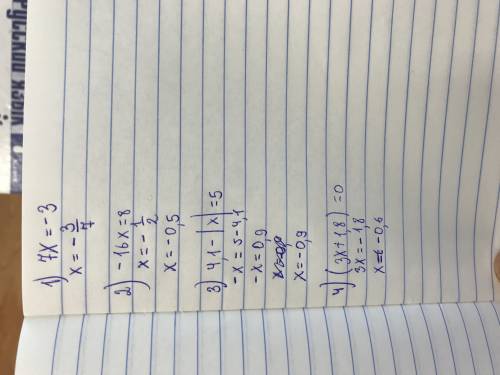 РУССКИЙ ЯЗЫК
1) 7x = -3
x = -3/7
2) -16x = 8
x = -1/2
x = -0,5
3) 4,1 - |x| = 5
-x = 5 - 4,1
-x = 0,9
x = -0,9
4) (3x + 1,8) = 0
3x = -1,8
x = -0,6